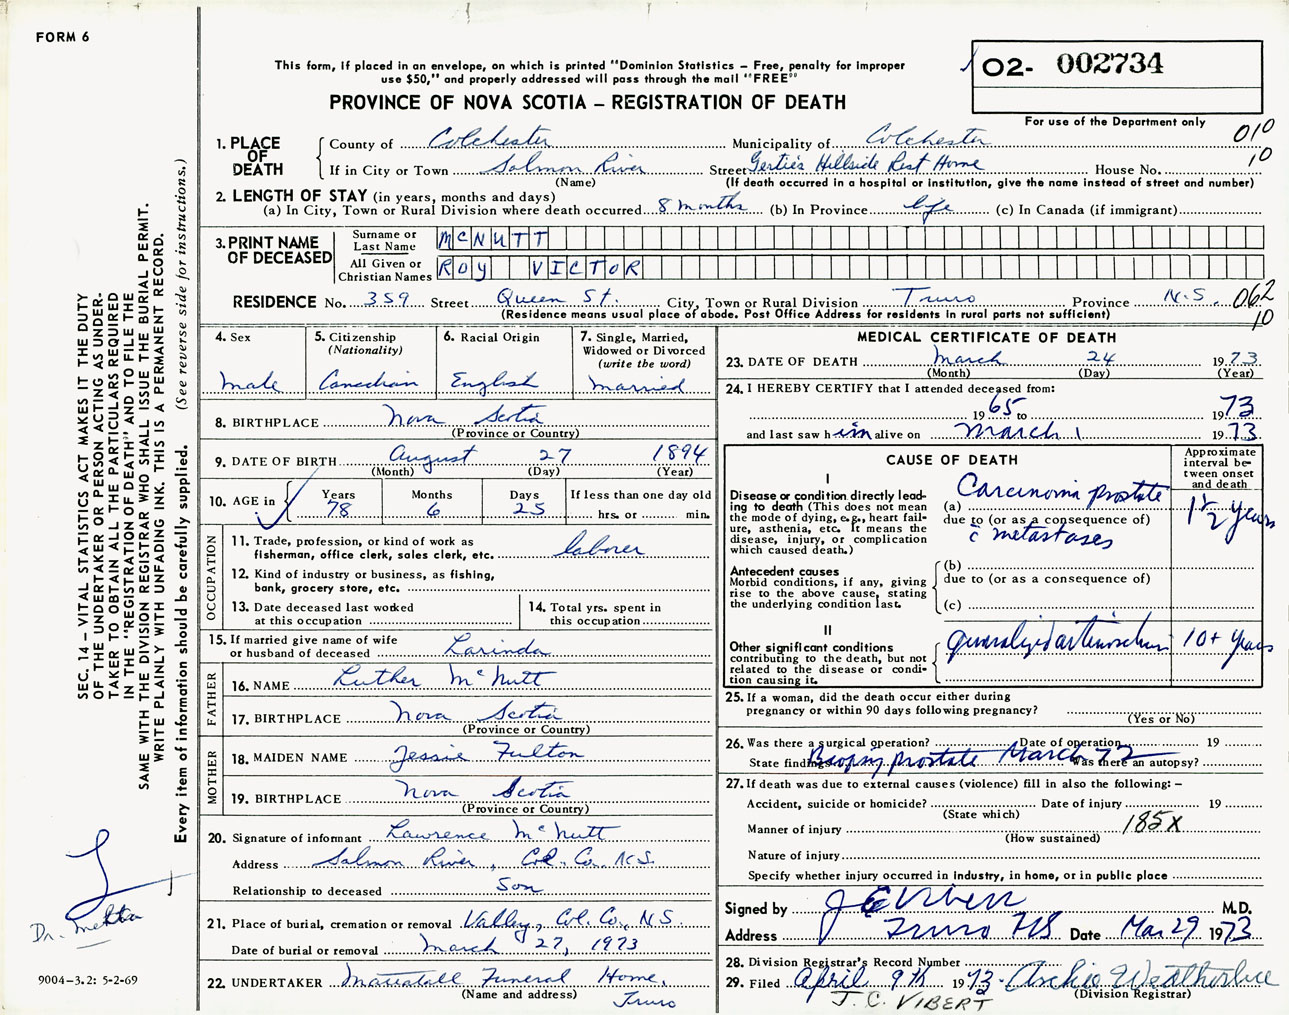 FORM 6
This form, if placed in an envelope, on which is printed "Dominion Statistics – Free, penalty for improper
use $50," and properly addressed will pass through the mail "FREE"
PROVINCE OF NOVA SCOTIA – REGISTRATION OF DEATH
02- 002734
For use of the Department only
010
10
1. PLACE OF DEATH
County of Colchester Municipality of Colchester
If in City or Town Salmon River Street Gertie's Hillside Rest Home House No.
(Name) (If death occurred in a hospital or institution, give the name instead of street and number)
2. LENGTH OF STAY (in years, months and days)
(a) In City, Town or Rural Division where death occurred 8 months (b) In Province life (c) In Canada (if immigrant)
3. PRINT NAME OF DECEASED
Surname or Last Name MCNUTT
All Given or Christian Names ROY VICTOR
RESIDENCE No. 359 Street Queen St. City, Town or Rural Division Truro Province N.S. 062
(Residence means usual place of abode. Post Office Address for residents in rural parts not sufficient) 10
4. Sex male
5. Citizenship (Nationality) Canadian
6. Racial Origin English
7. Single, Married, Widowed or Divorced (write the word) married
8. BIRTHPLACE Nova Scotia
(Province or Country)
9. DATE OF BIRTH August 27 1894
(Month) (Day) (Year)
10. AGE in Years 78 Months 6 Days 25 If less than one day old hrs. or min.
OCCUPATION
11. Trade, profession, or kind of work as fisherman, office clerk, sales clerk, etc. laborer
12. Kind of industry or business, as fishing, bank, grocery store, etc.
13. Date deceased last worked at this occupation
14. Total yrs. spent in this occupation
15. If married give name of wife or husband of deceased Larinda
FATHER
16. NAME Luther McNutt
17. BIRTHPLACE Nova Scotia
(Province or Country)
MOTHER
18. MAIDEN NAME Jessie Fulton
19. BIRTHPLACE Nova Scotia
(Province or Country)
20. Signature of informant Lawrence McNutt
Address Salmon River, Col. Co. N.S.
Relationship to deceased Son
21. Place of burial, cremation or removal Valley, Col. Co., N.S.
Date of burial or removal March 27, 1973
22. UNDERTAKER Mattatall Funeral Home,
(Name and address) Truro
MEDICAL CERTIFICATE OF DEATH
23. DATE OF DEATH March 24 1973
(Month) (Day) (Year)
24. I HEREBY CERTIFY that I attended deceased from:
1965 to 1973
and last saw him alive on March 1 1973
CAUSE OF DEATH
Approximate interval between onset and death
I
Disease or condition directly leading to death (This does not mean the mode of dying, e.g., heart failure, asthenia, etc. It means the disease, injury, or complication which caused death.)
(a) Carcinoma prostate 1½ years
due to (or as a consequence of)
c̄ metastases
Antecedent causes
Morbid conditions, if any, giving rise to the above cause, stating the underlying condition last.
(b)
due to (or as a consequence of)
(c)
II
Other significant conditions contributing to the death, but not related to the disease or condition causing it.
generalized 10+ years
25. If a woman, did the death occur either during pregnancy or within 90 days following pregnancy?
(Yes or No)
26. Was there a surgical operation? Date of operation 19
State findings Biopsy prostate March 72 Was there an autopsy?
27. If death was due to external causes (violence) fill in also the following: –
Accident, suicide or homicide? Date of injury 19
(State which)
Manner of injury 185X
(How sustained)
Nature of injury
Specify whether injury occurred in industry, in home, or in public place
Signed by M.D.
Address Truro NS Date Mar 29 1973
28. Division Registrar's Record Number
29. Filed April 9th 1973 Archie Weatherbee
(Division Registrar)
J. C. VIBERT
SEC. 14 – VITAL STATISTICS ACT MAKES IT THE DUTY
OF THE UNDERTAKER OR PERSON ACTING AS UNDER-
TAKER TO OBTAIN ALL THE PARTICULARS REQUIRED
IN THE "REGISTRATION OF DEATH" AND TO FILE THE
SAME WITH THE DIVISION REGISTRAR WHO SHALL ISSUE THE BURIAL PERMIT.
WRITE PLAINLY WITH UNFADING INK. THIS IS A PERMANENT RECORD.
Every item of information should be carefully supplied. (See reverse side for instructions.)
Dr. Mehta
9004–3.2: 5-2-69